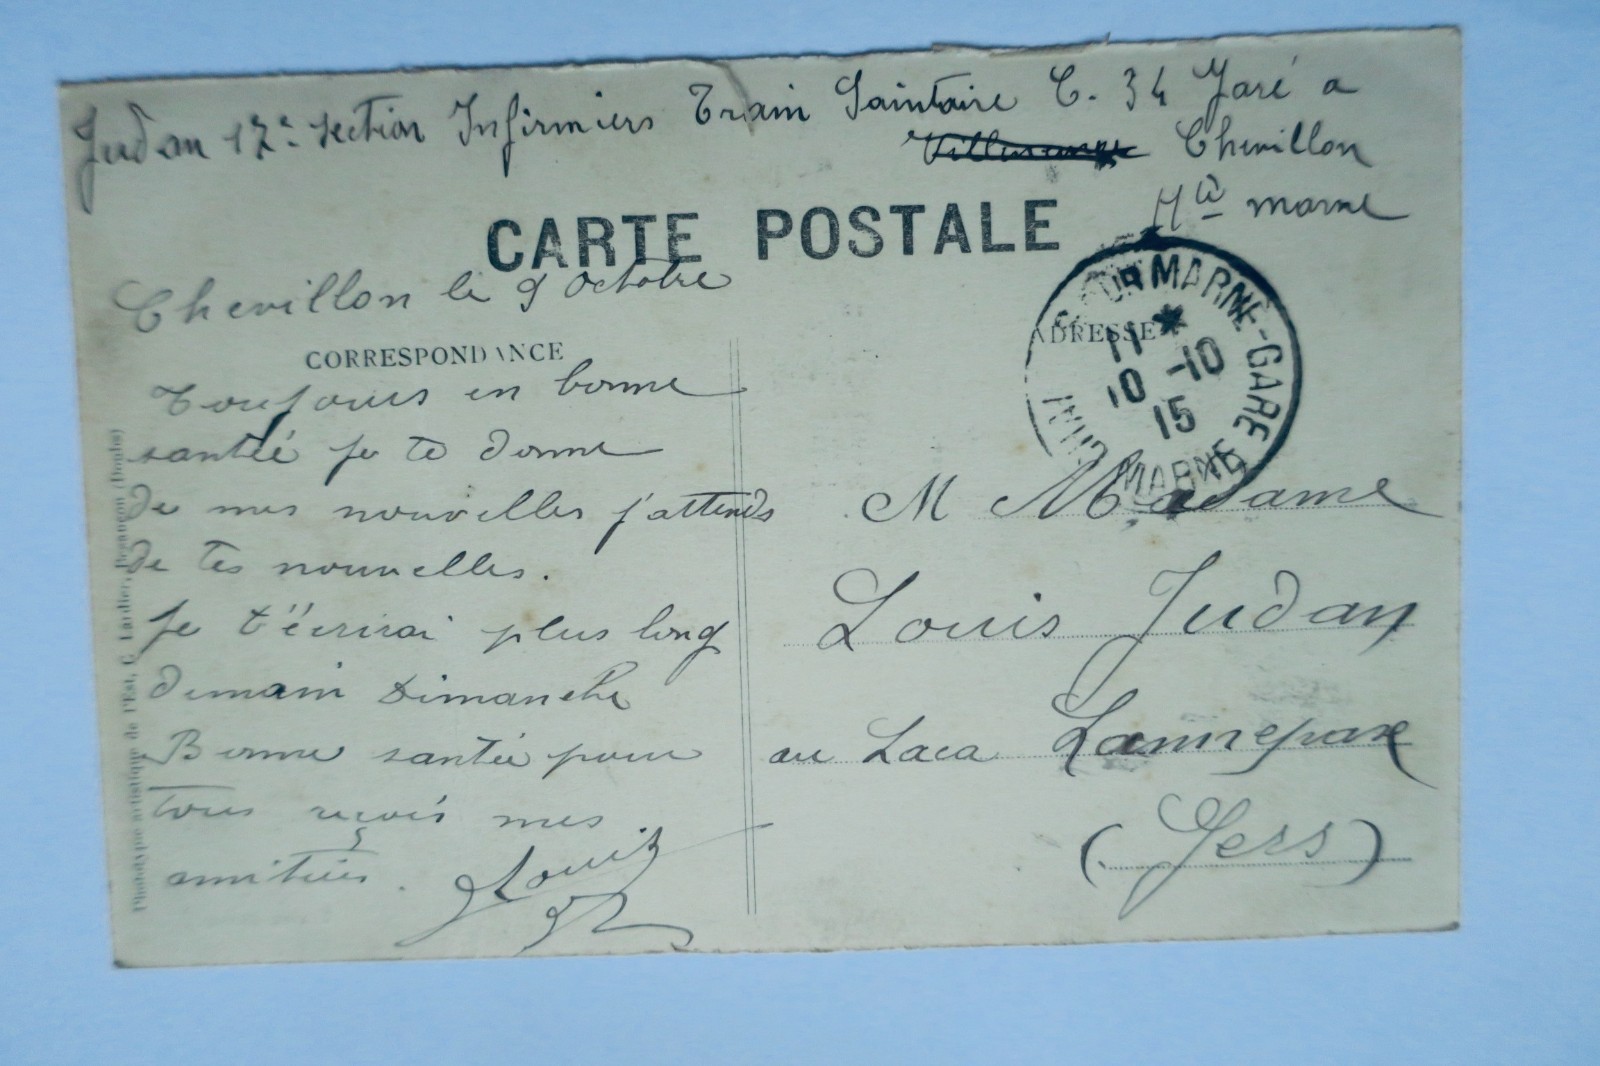 Judan 17e section Infirmiers Train Sanitaire C. 34 Garé a
Chevillon
Hte marne
CARTE POSTALE
Chevillon le 9 octobre
CORRESPONDANCE
Toujours en bonne
santée je te donne
de mes nouvelles j'attends
de tes nouvelles.
Je t'écrirai plus long
demain Dimanche
Bonne santée pour
tous reçois mes
amitiés.
Louis
ADRESSE
MARNE-GARE
11 *
10 -10
15
MARNE
M Madame
Louis Judan
au Laca Lannepax
(Gers)
Phototypie artistique de l'Est, C. Lardier, Besançon (Doubs)